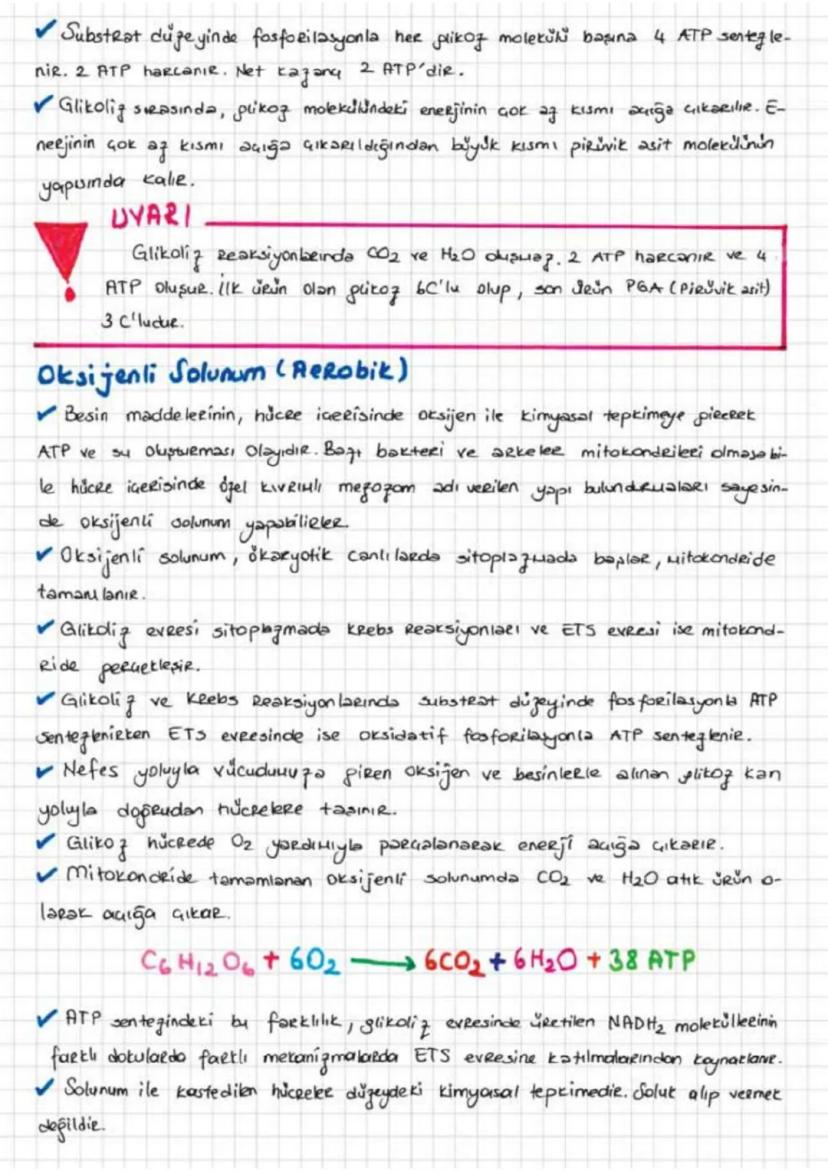 ✓ Substrat düzeyinde fosforilasyonla her glikoz molekülü başına 4 ATP sentezle-
nir. 2 ATP harcanır. Net kazanç 2 ATP'dir.
✓ Glikoliz sırasında, glikoz molekülündeki enerjinin çok az kısmı açığa çıkarılır. E-
nerjinin çok az kısmı açığa çıkarıldığından büyük kısmı pirüvik asit molekülünün
yapısında kalır.
UYARI
Glikoliz reaksiyonlarında CO₂ ve H₂O oluşmaz. 2 ATP harcanır ve 4
ATP oluşur. İlk ürün olan glikoz 6C'lu olup, son ürün PGA (Pirüvik asit)
3 C'ludur.
Oksijenli Solunum (Aerobik)
✓ Besin maddelerinin, hücre içerisinde oksijen ile kimyasal tepkimeye girerek
ATP ve su oluşturması olayıdır. Bazı bakteri ve arkeler mitokondrileri olmasa bi-
le hücre içerisinde özel kıvrımlı mezozom adı verilen yapı bulundurmaları sayesin-
de oksijenli solunum yapabilirler.
✓ Oksijenli solunum, ökaryotik canlılarda sitoplazmada başlar, mitokondride
tamamlanır.
✓ Glikoliz evresi sitoplazmada krebs reaksiyonları ve ETS evresi ise mitokond-
ride gerçekleşir.
✓ Glikoliz ve Krebs reaksiyonlarında substrat düzeyinde fosforilasyonla ATP
sentezlenirken ETS evresinde ise oksidatif fosforilasyonla ATP sentezlenir.
✓ Nefes yoluyla vücudumuza giren oksijen ve besinlerle alınan glikoz kan
yoluyla doğrudan hücrelere taşınır.
✓ Glikoz hücrede O₂ yardımıyla parçalanarak enerji açığa çıkarır.
✓ Mitokondride tamamlanan oksijenli solunumda CO₂ ve H₂O atık ürün o-
larak açığa çıkar.
C₆H₁₂O₆ + 6O₂ → 6CO₂ + 6H₂O + 38 ATP
✓ ATP sentezindeki bu farklılık, glikoliz evresinde üretilen NADH₂ moleküllerinin
farklı dokularda farklı mekanizmalarda ETS evresine katılmalarından kaynaklanır.
✓ Solunum ile kastedilen hücreler düzeydeki kimyasal tepkimedir. Soluk alıp vermek
değildir.